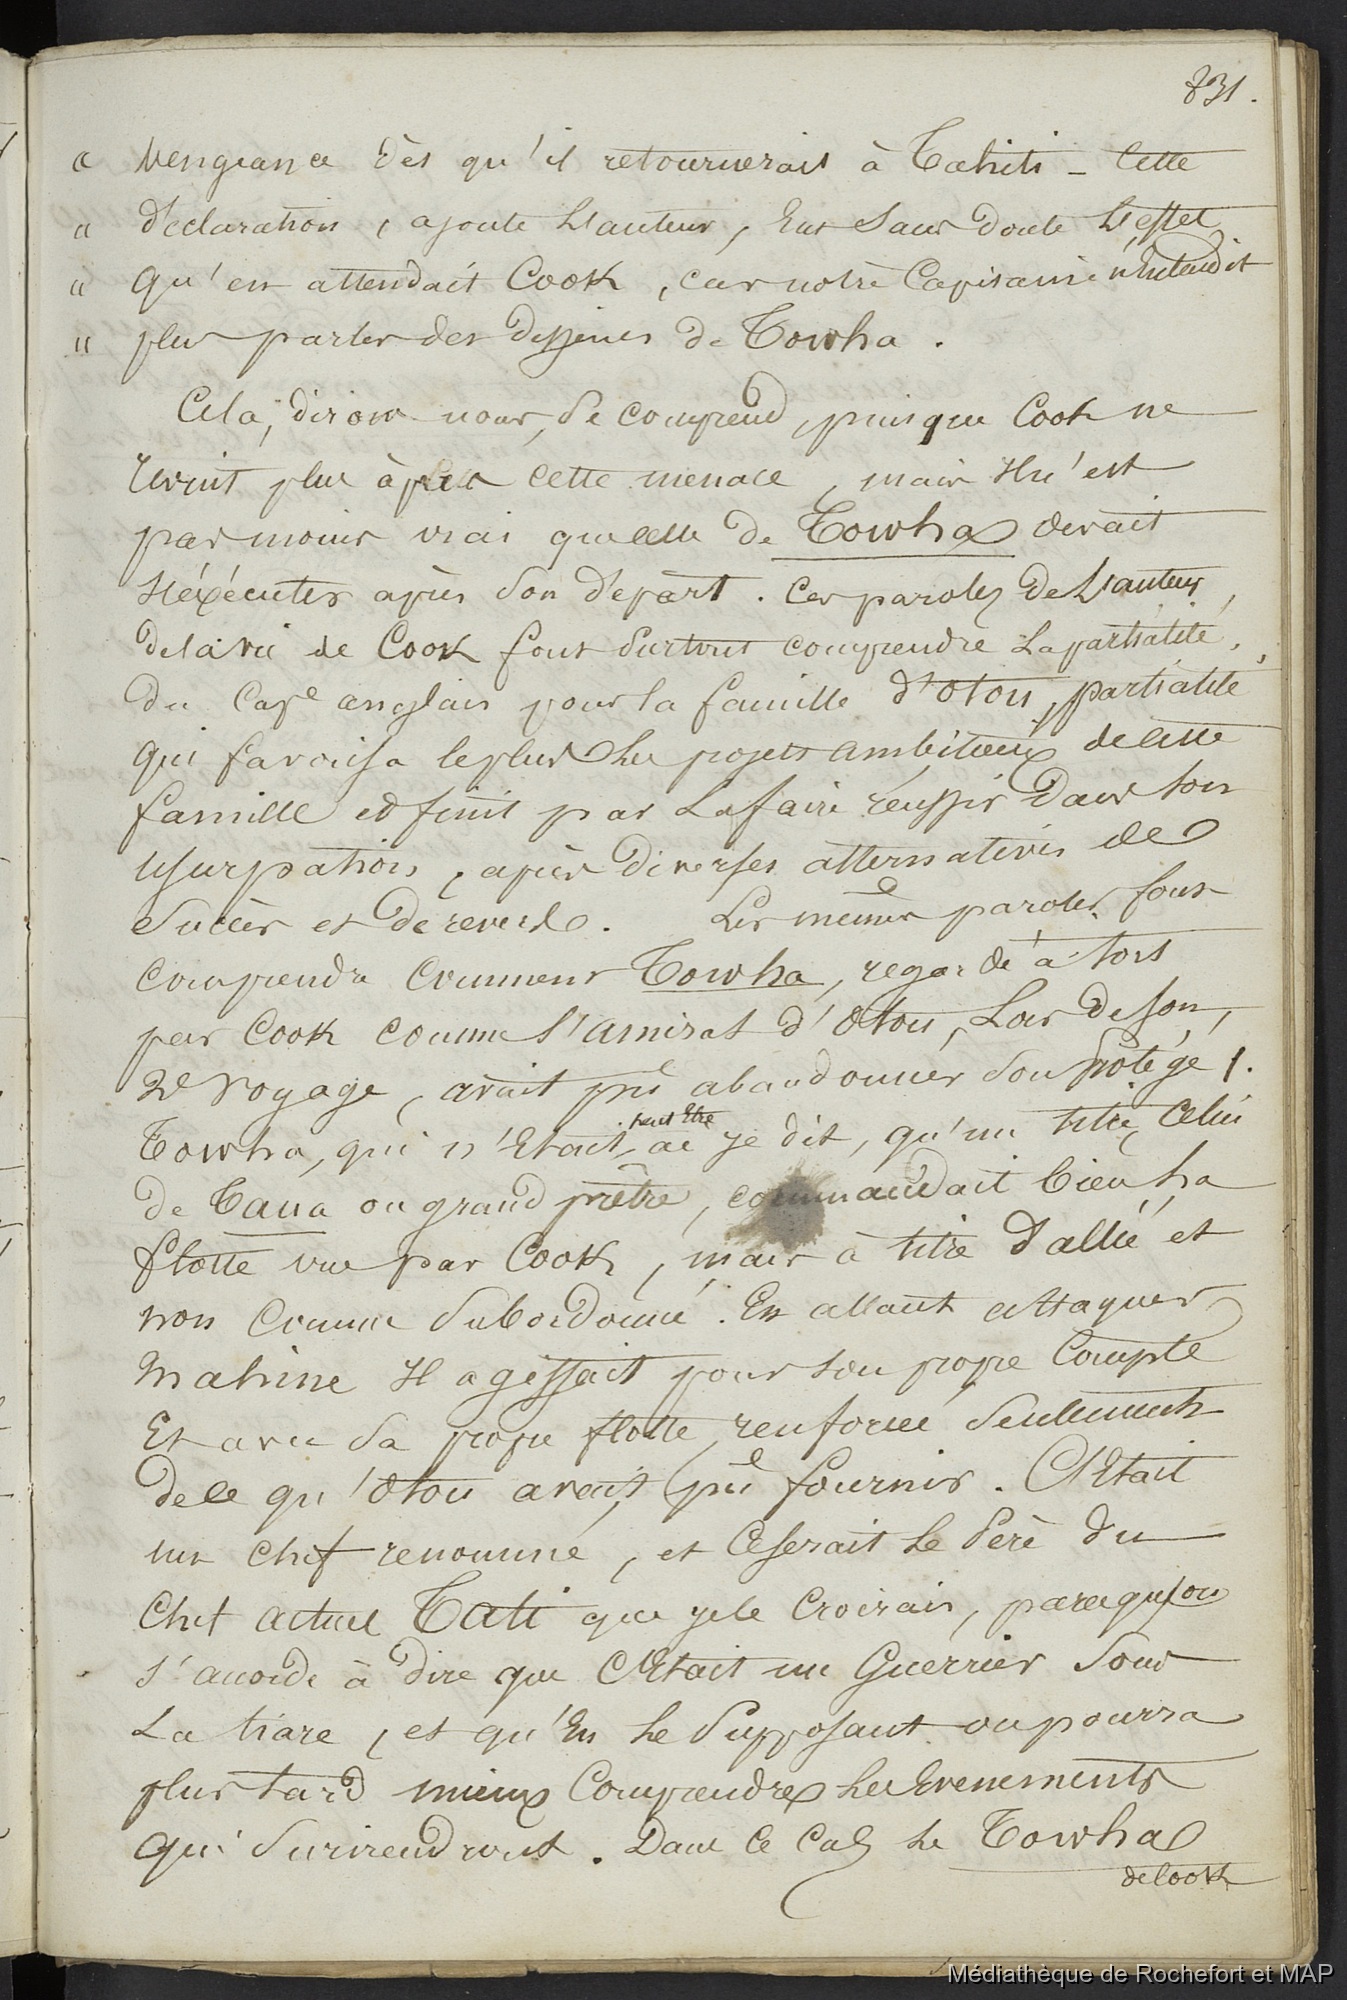 831.
" Vengeance dès qu'il retournerait à Taehiti _ Cette
" déclaration, ajoute L'auteur, Eut Sans doute L'effet
" qu'en attendait Cook, car notre Capitaine n'Entendit
" plus parler des desseins de Towha.
Cela, dirons nous, Se comprend, puisque Cook ne
revint plus après cette menace, mais Il n'est
pas moins vrai que celle de Towha devait
s'éxécuter après Son départ. Ces paroles de L'auteur
de la vie de Cook font Surtout comprendre La partialité,
du Cape anglais pour la famille d'Otou, partialité
qui favorisa le plus Les projets ambitieux de cette
famille et finit par La faire réussir dans son
usurpation, après diverses alternatives de
Succès et de revers. Les mêmes paroles font
comprendre comment Towha, regardé à tort
par Cook comme l'amiral d'Otou, Lors de son
2e Voyage, avait pû abandonner Son protégé.
Towha, qui n'Etait, peut Etre ai je dit, qu'un titre, Celui
de Taua ou grand prêtre, commandait bien La
flotte vue par Cook, mais à titre d'allié et
non Comme Subordonné. En allant attaquer
Mahine Il agissait pour son propre Compte
Et avec Sa propre flotte, renforcée Seulement
de ce qu'Otou avait pû fournir. C'Etait
un chef renommé, et Ce serait Le Père du
Chef actuel Tati que je le Croirais, parcequ'on
s'accorde à dire que C'Etait un Guerrier Sous
La tiare, et qu'En Le Supposant on pourra
plus tard mieux Comprendre Les Evenements
qui Surviendront. Dans Ce Cas Le Towha
de Cook
Médiathèque de Rochefort et MAP